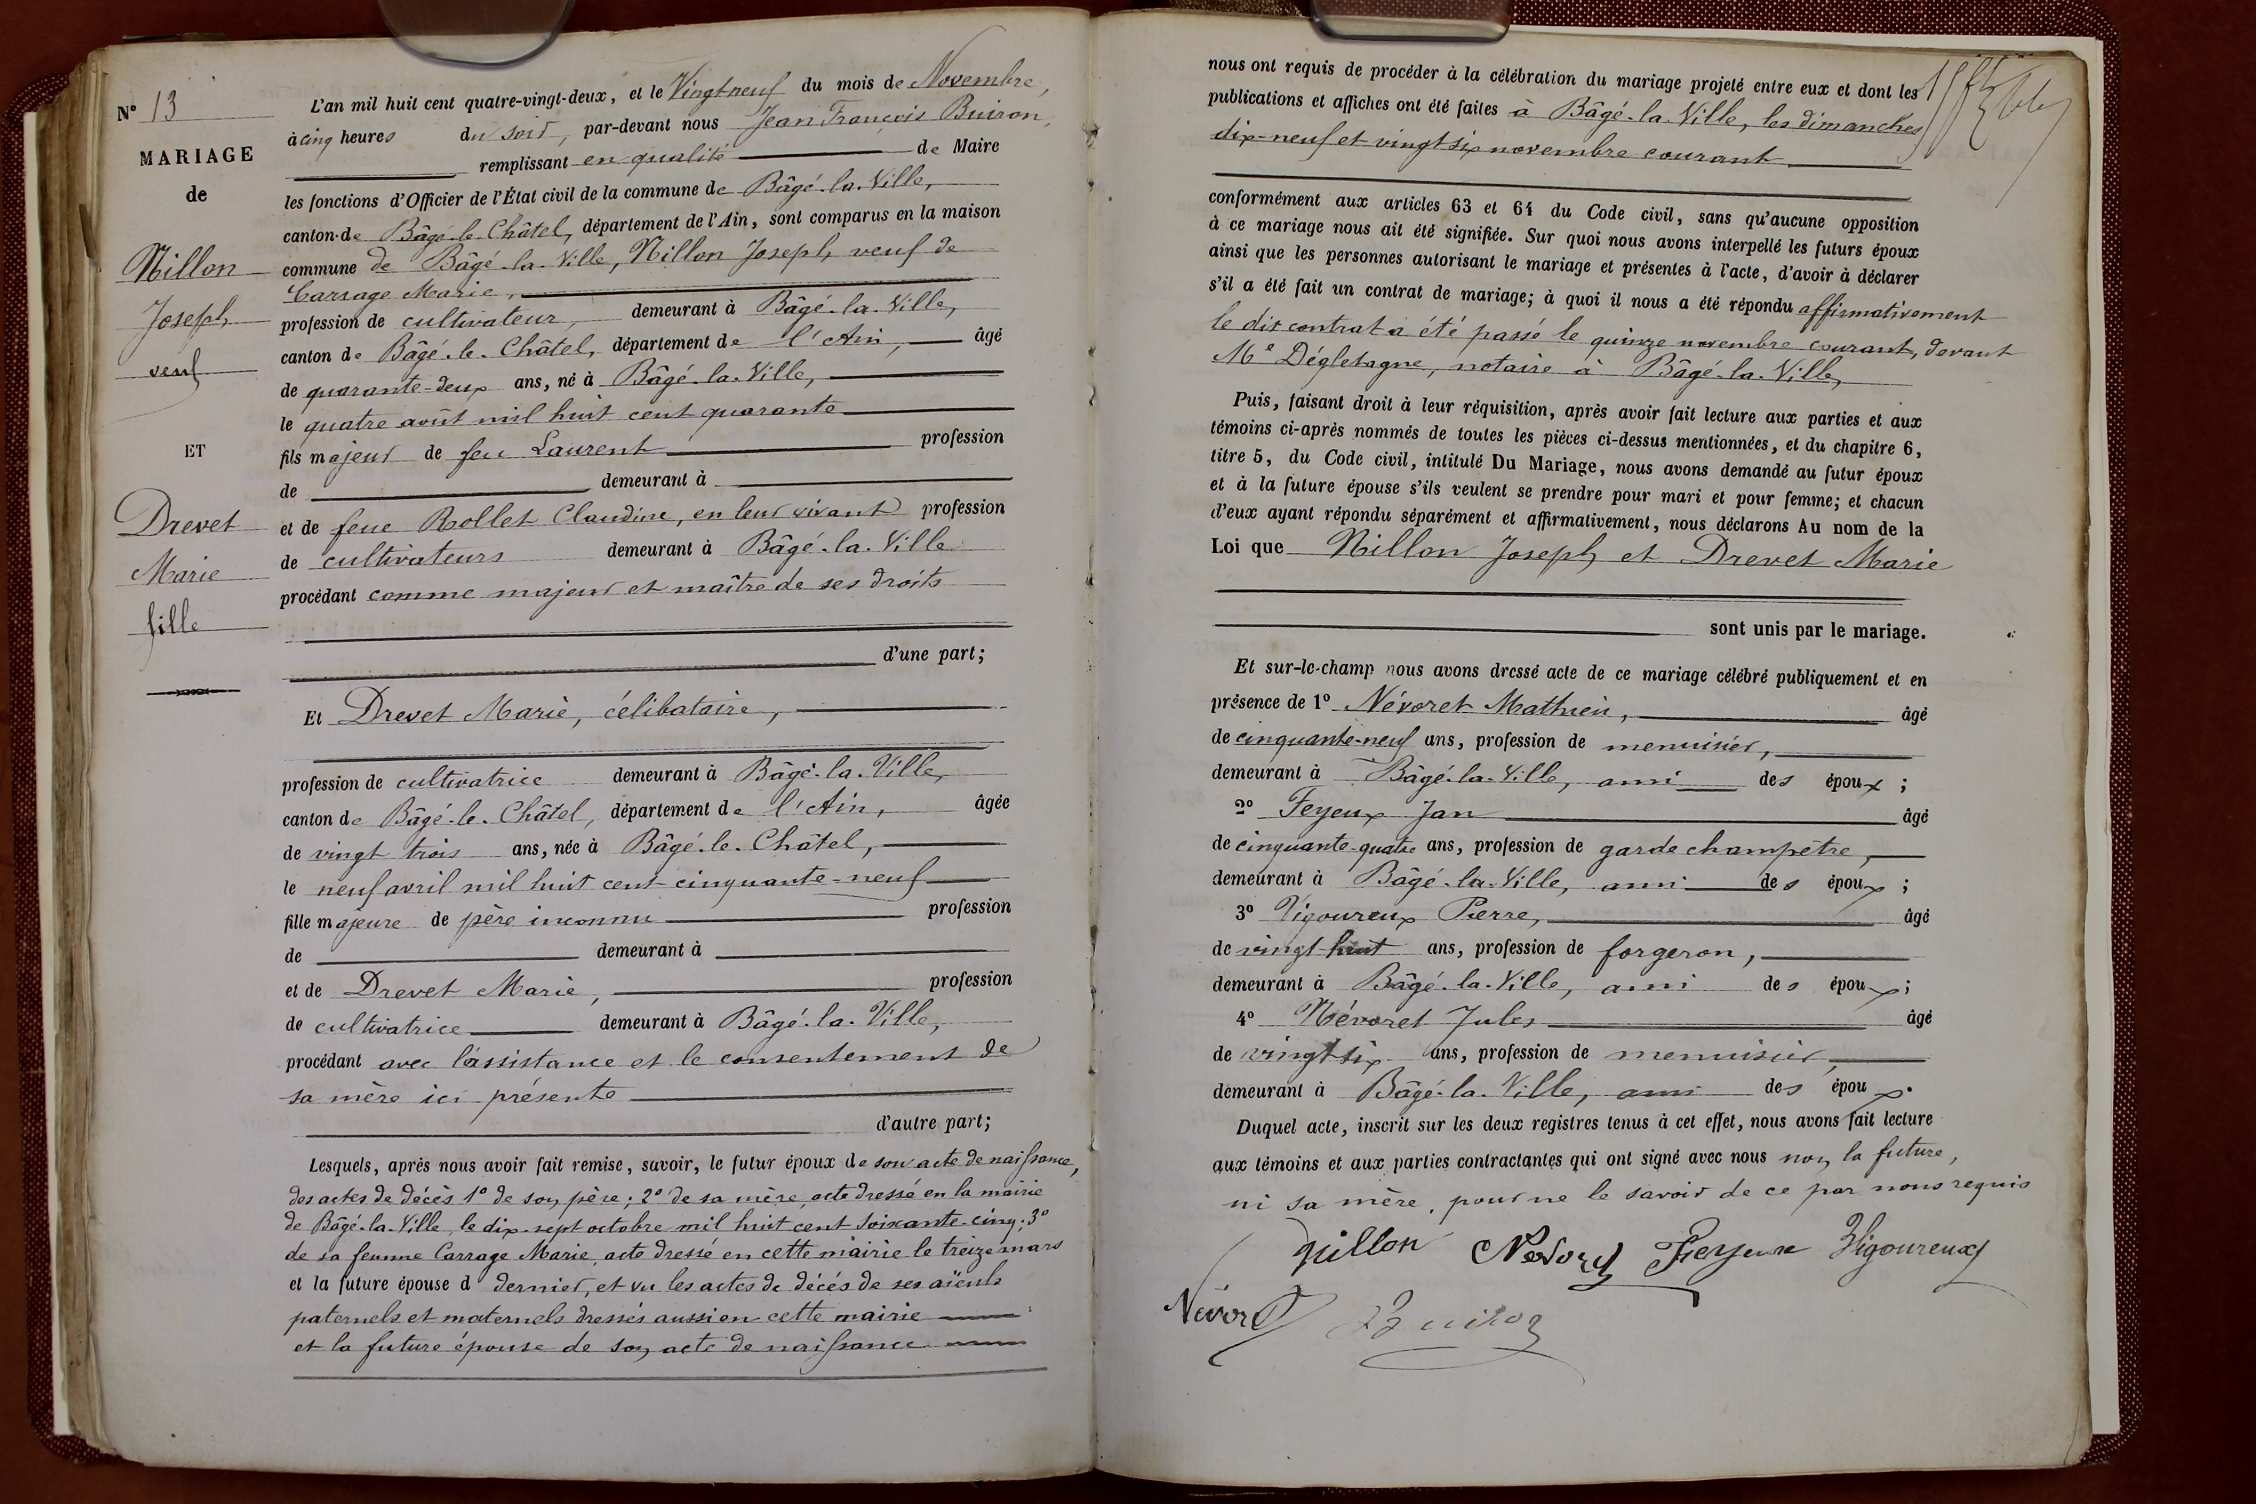 N° 13
MARIAGE
de
Nillon
Joseph
veuf
ET
Drevet
Marie
fille
L'an mil huit cent quatre-vingt-deux, et le Vingt neuf du mois de Novembre,
à cinq heures du soir, par-devant nous Jean François Buiron,
remplissant en qualité de Maire
les fonctions d'Officier de l'État civil de la commune de Bâgé-la-Ville,
canton de Bâgé-le-Châtel, département de l'Ain, sont comparus en la maison
commune de Bâgé-la-Ville, Nillon Joseph, veuf de
Carrage Marie,
profession de cultivateur, demeurant à Bâgé-la-Ville,
canton de Bâgé-le-Châtel, département de l'Ain, âgé
de quarante-deux ans, né à Bâgé-la-Ville,
le quatre août mil huit cent quarante
fils majeur de feu Laurent profession
de demeurant à
et de feue Rollet Claudine, en leur vivant profession
de cultivateurs demeurant à Bâgé-la-Ville
procédant comme majeur et maître de ses droits
d'une part;
Et Drevet Marie, célibataire,
profession de cultivatrice demeurant à Bâgé-la-Ville,
canton de Bâgé-le-Châtel, département de l'Ain, âgée
de vingt trois ans, née à Bâgé-le-Châtel,
le neuf avril mil huit cent cinquante-neuf
fille majeure de père inconnu profession
de demeurant à
et de Drevet Marie, profession
de cultivatrice demeurant à Bâgé-la-Ville,
procédant avec l'assistance et le consentement de
sa mère ici présente
d'autre part;
Lesquels, après nous avoir fait remise, savoir, le futur époux de son acte de naissance,
des actes de décès 1° de son père; 2° de sa mère, acte dressé en la mairie
de Bâgé-la-Ville, le dix-sept octobre mil huit cent soixante-cinq; 3°
de sa femme Carrage Marie, acte dressé en cette mairie le treize mars
et la future épouse d dernier, et vu les actes de décès de ses aïeuls
paternels et maternels dressés aussi en cette mairie
et la future épouse de son acte de naissance
nous ont requis de procéder à la célébration du mariage projeté entre eux et dont les
publications et affiches ont été faites à Bâgé-la-Ville, les dimanches
dix-neuf et vingt six novembre courant
conformément aux articles 63 et 64 du Code civil, sans qu'aucune opposition
à ce mariage nous ait été signifiée. Sur quoi nous avons interpellé les futurs époux
ainsi que les personnes autorisant le mariage et présentes à l'acte, d'avoir à déclarer
s'il a été fait un contrat de mariage; à quoi il nous a été répondu affirmativement
le dit contrat a été passé le quinze novembre courant, devant
Me Dégletagne, notaire à Bâgé-la-Ville,
Puis, faisant droit à leur réquisition, après avoir fait lecture aux parties et aux
témoins ci-après nommés de toutes les pièces ci-dessus mentionnées, et du chapitre 6,
titre 5, du Code civil, intitulé Du Mariage, nous avons demandé au futur époux
et à la future épouse s'ils veulent se prendre pour mari et pour femme; et chacun
d'eux ayant répondu séparément et affirmativement, nous déclarons Au nom de la
Loi que Nillon Joseph et Drevet Marie
sont unis par le mariage.
Et sur-le-champ nous avons dressé acte de ce mariage célébré publiquement et en
présence de 1° Névoret Mathieu, âgé
de cinquante-neuf ans, profession de menuisier,
demeurant à Bâgé-la-Ville, ami des époux;
2° Feyeux Jan âgé
de cinquante-quatre ans, profession de garde champêtre,
demeurant à Bâgé-la-Ville, ami des époux;
3° Vigoureux Pierre, âgé
de vingt huit ans, profession de forgeron,
demeurant à Bâgé-la-Ville, ami des époux;
4° Névoret Jules âgé
de vingt six ans, profession de menuisier,
demeurant à Bâgé-la-Ville, ami des époux.
Duquel acte, inscrit sur les deux registres tenus à cet effet, nous avons fait lecture
aux témoins et aux parties contractantes qui ont signé avec nous non la future,
ni sa mère, pour ne le savoir de ce par nous requis
Nillon Nevoret Feyeux Vigoureux
Névoret Buiron